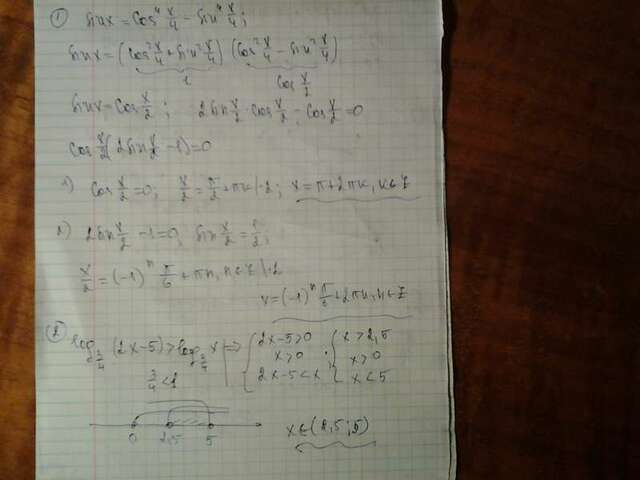 ① sin x = cos⁴ x/4 - sin⁴ x/4;
sin x = (cos² x/4 + sin² x/4) (cos² x/4 - sin² x/4)
1 cos x/2
sin x = cos x/2; 2 sin x/2 · cos x/2 - cos x/2 = 0
cos x/2 (2 sin x/2 - 1) = 0
1) cos x/2 = 0; x/2 = π/2 + πk |·2; x = π + 2πk, k ∈ Z
2) 2 sin x/2 - 1 = 0; sin x/2 = 1/2;
x/2 = (-1)ⁿ π/6 + πn, n ∈ Z |·2
x = (-1)ⁿ π/3 + 2πn, n ∈ Z
② log_{3/4} (2x-5) > log_{3/4} x ⇒ { 2x-5>0 { x > 2,5
3/4 < 1 x>0 ; x>0
2x-5<x x<5
0 2,5 5 x ∈ (2,5; 5)